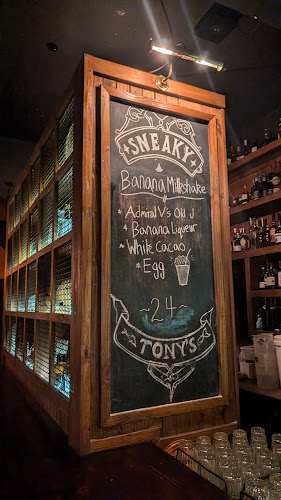 SNEAKY
Banana Milkshake
* Admiral Vs Old J
* Banana Liqueur
* White Cacao
* Egg
~24~
TONY'S